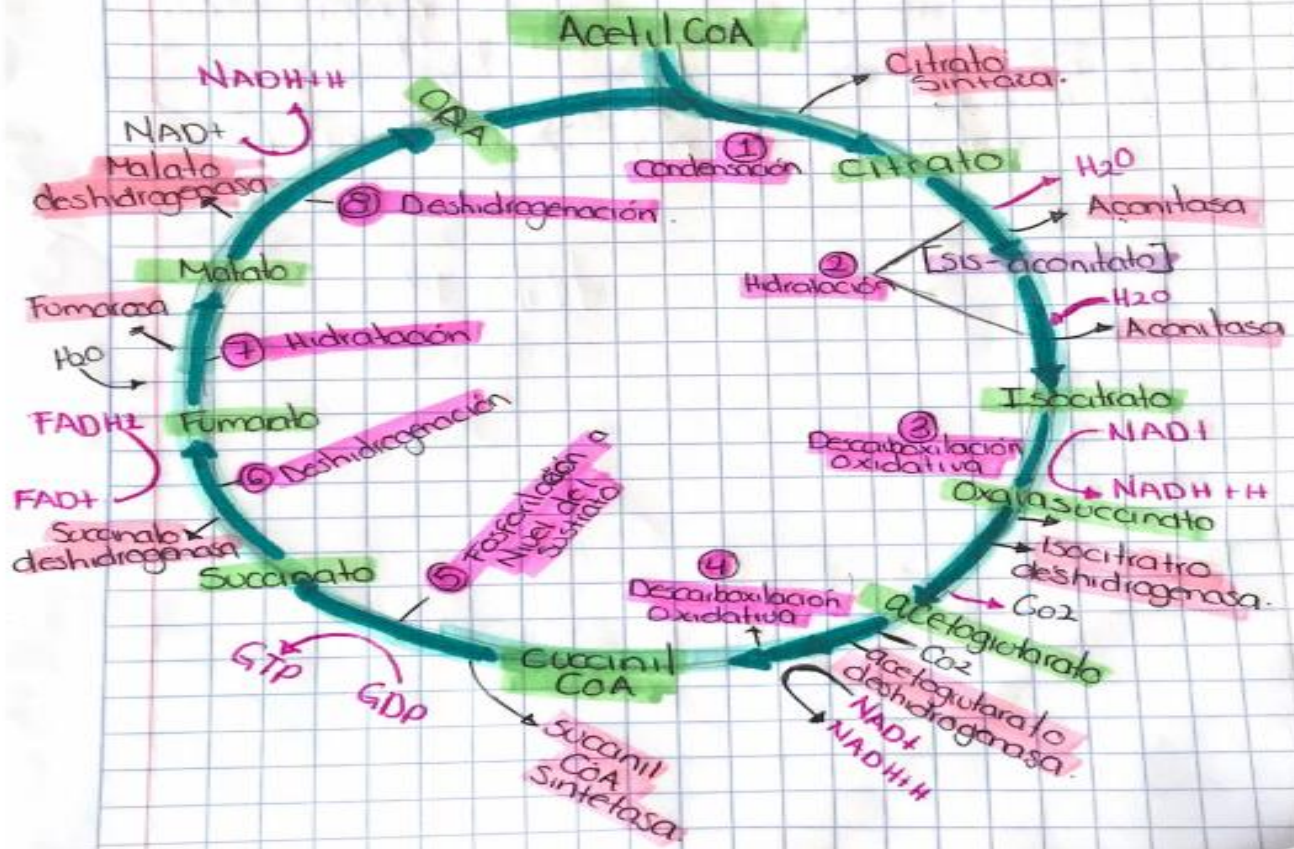 Acetil CoA
Citrato
Sintaza.
①
Condensación
Citrato
H2O
Aconitasa
②
Hidratación
[sis-aconitato]
H2O
Aconitasa
Isocitrato
③
Descarboxilación
Oxidativa
NAD+
NADH + H
Oxalasuccinato
Isocitratro
deshidrogenasa.
CO2
acetoglutarato
④
Descarboxilación
Oxidativa
CO2
acetoglutarato
deshidrogenasa.
NAD+
NADH+H
Succinil
CoA
Succinil
COA
Sintetasa.
⑤ Fosforilación a
Nivel del
Sustrato
GDP
GTP
Succinato
Succinato
deshidrogenasa
⑥ Deshidrogenación
FAD+
FADH2
Fumarato
H2O
⑦ Hidratación
Fumarasa
Malato
⑧ Deshidrogenación
Malato
deshidrogenasa
NAD+
NADH+H
OAA